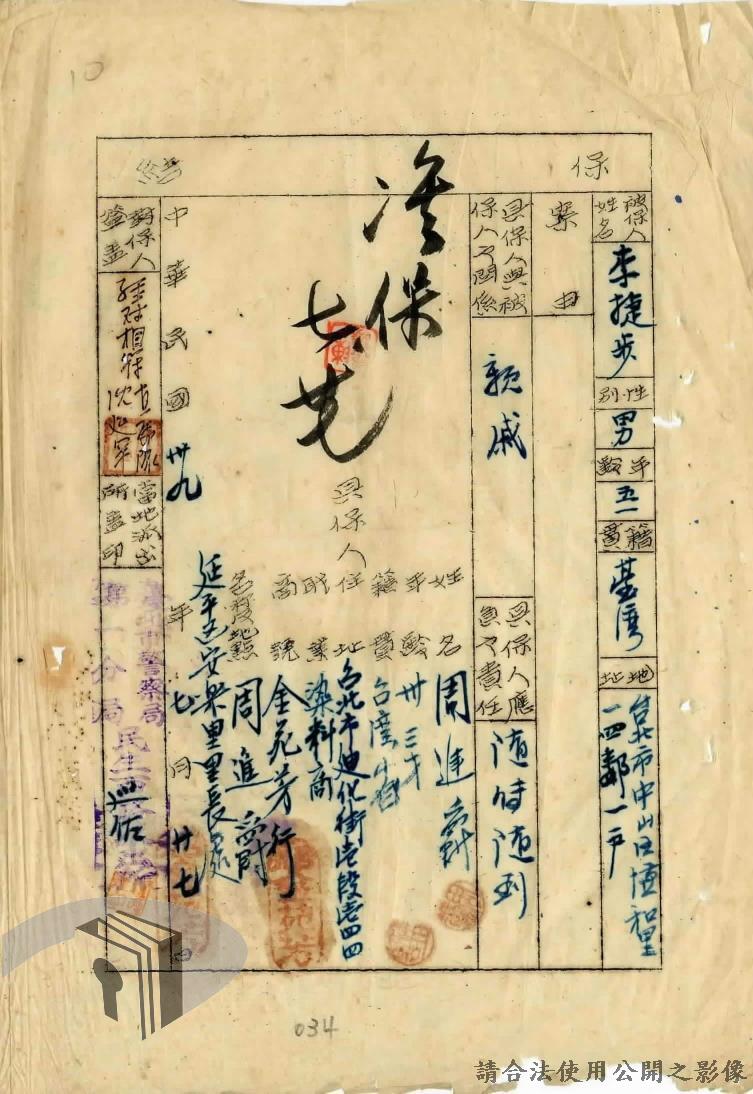 10
保結
被保人姓名
李捷步
性別
男
年齡
五一
籍貫
臺灣
地址
台北市中山區恆和里
一四鄰一戶
案由
具保人與被保人之關係
親戚
具保人應負之責任
隨時隨到
准保
七、廿
具保人
姓名 周進爵
年齡 卅三才
籍貫 台灣省
住址 台北市迪化街壱段壱四四
職業 染料商
商號 金苑芳行
名覆地點 周進爵
延平區安樂里里長處
中華民國卅九年七月廿七日
對保人簽蓋
經對相符
當地派出所蓋印
臺北市警察局
第一分局
民生
034
請合法使用公開之影像